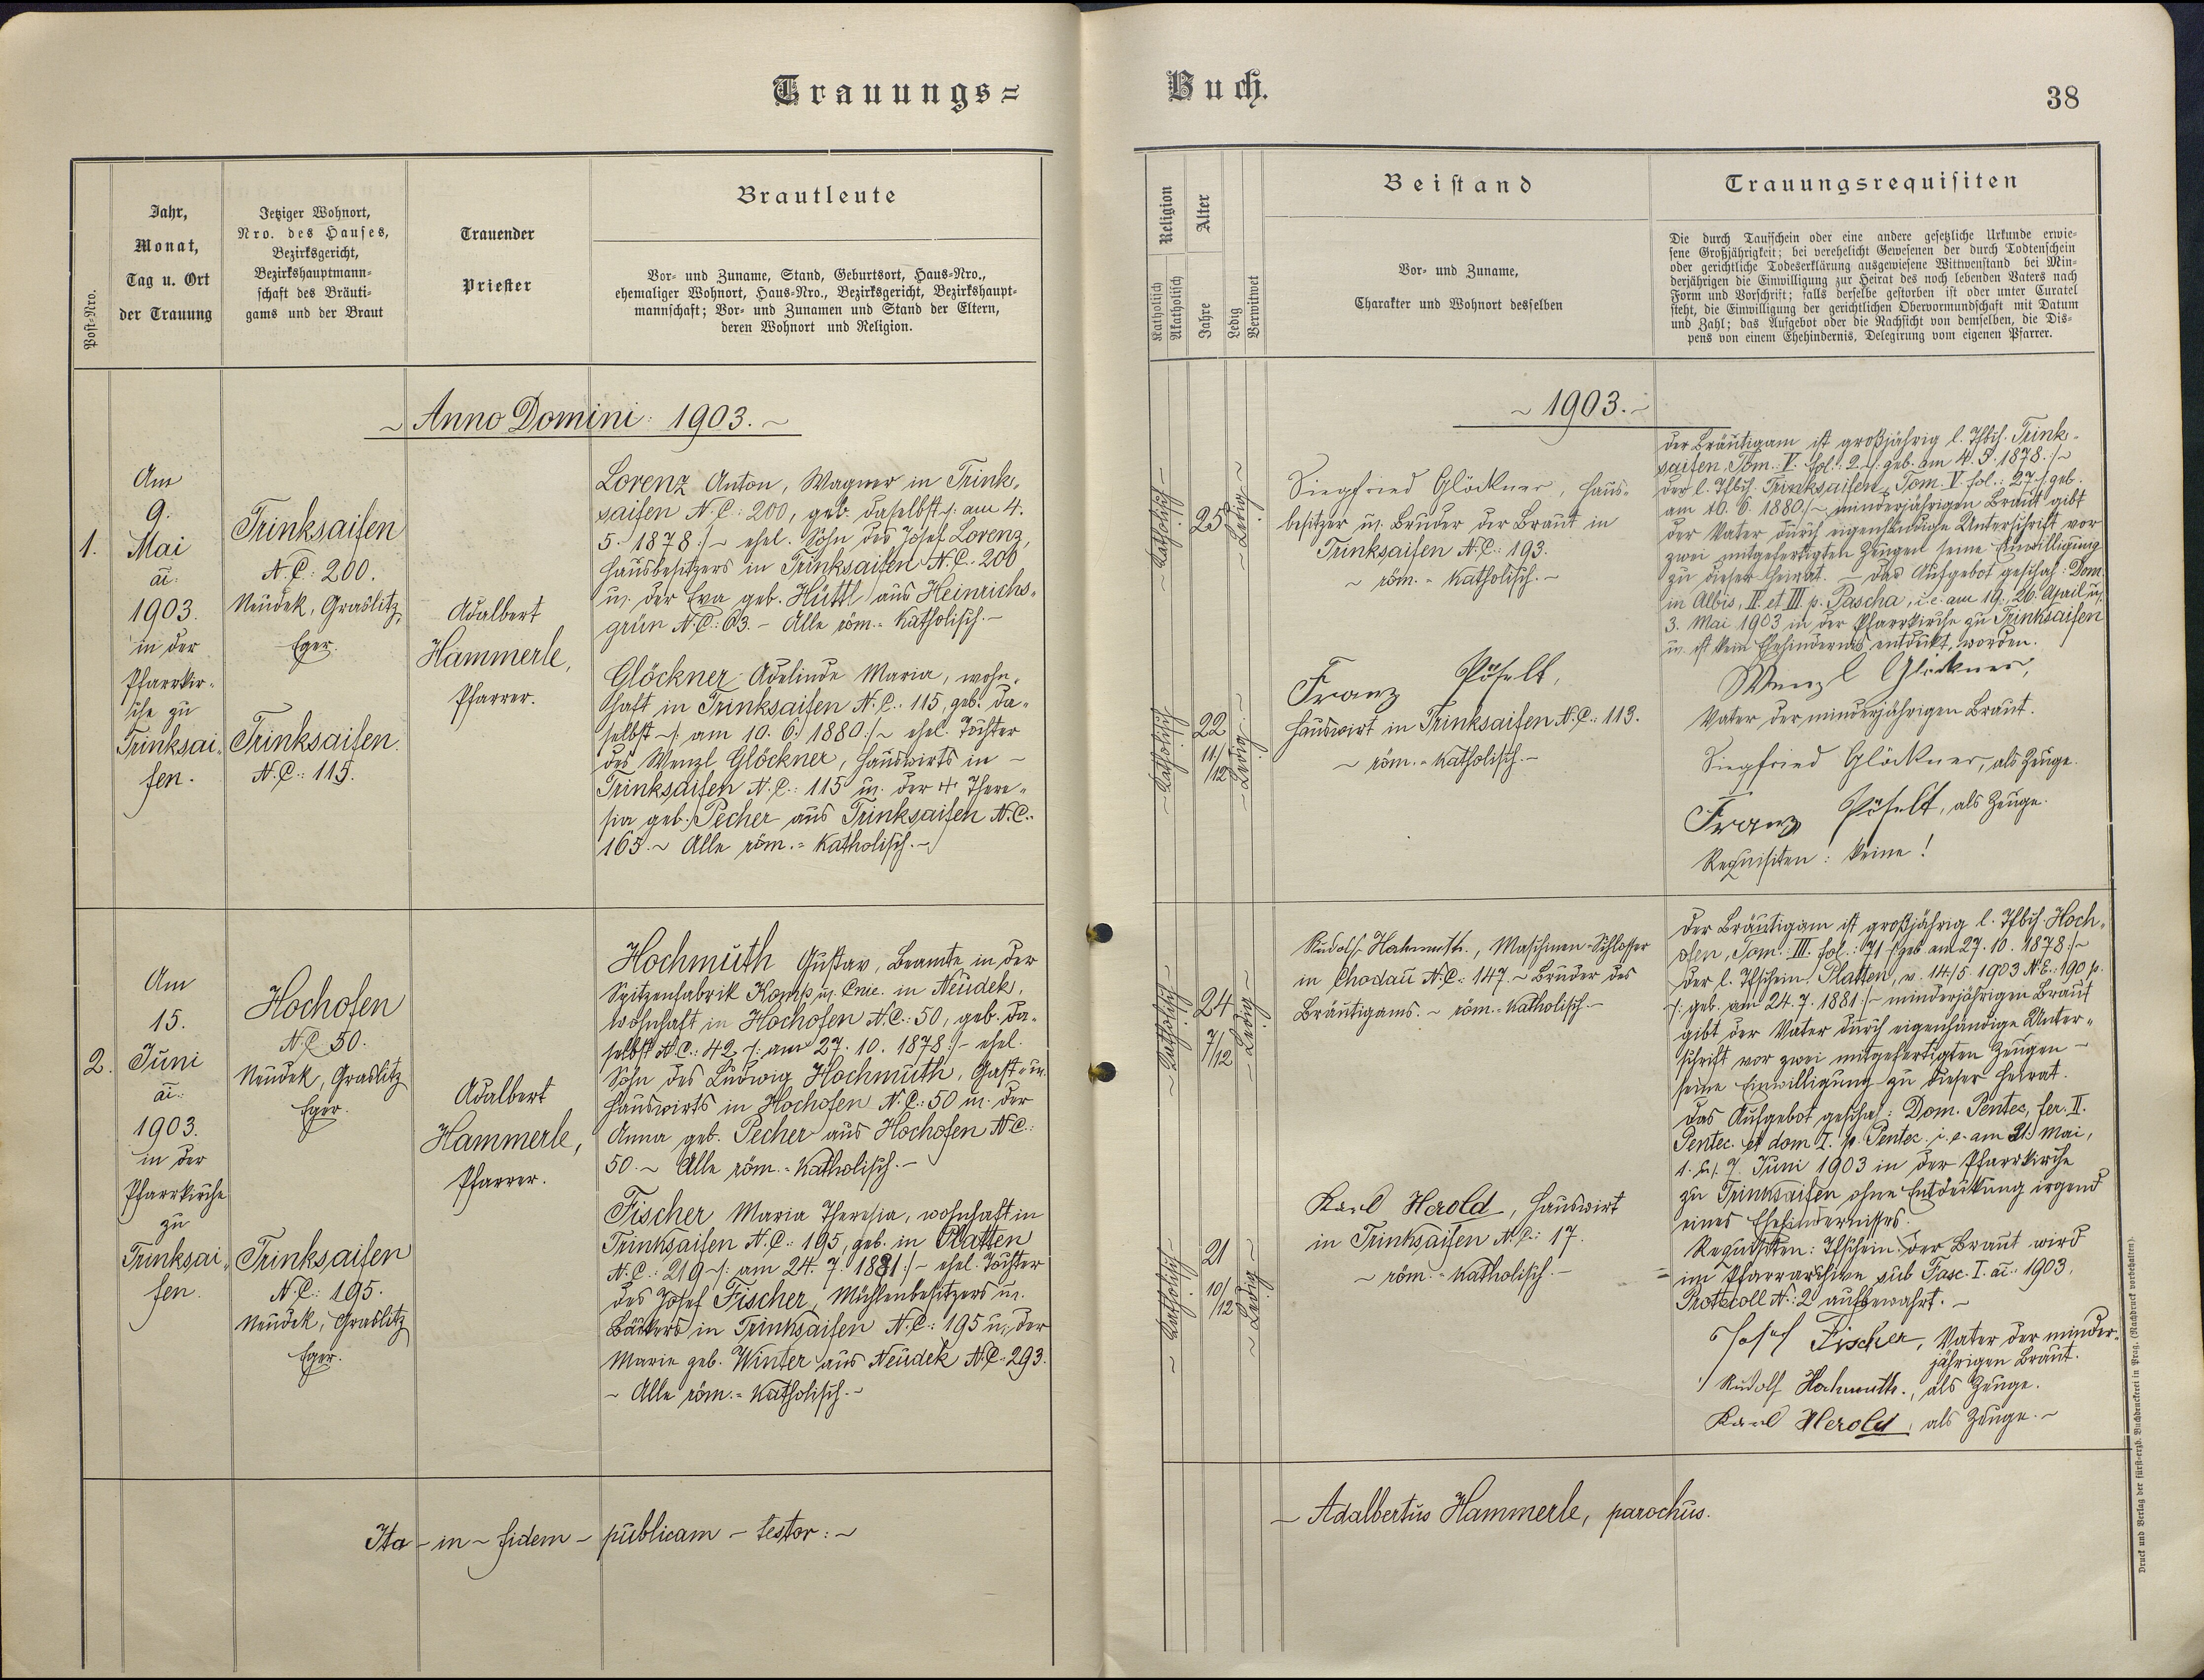 Trauungs=
Buch.
38
Post-Nro.
Jahr,
Monat,
Tag u. Ort
der Trauung
Jetziger Wohnort,
Nro. des Hauses,
Bezirksgericht,
Bezirkshauptmann-
schaft des Bräuti-
gams und der Braut
Trauender
Priester
Brautleute
Vor- und Zuname, Stand, Geburtsort, Haus-Nro.,
ehemaliger Wohnort, Haus-Nro., Bezirksgericht, Bezirkshaupt-
mannschaft; Vor- und Zunamen und Stand der Eltern,
deren Wohnort und Religion.
Religion
Katholisch
Akatholisch
Alter
Jahre
Ledig
Verwitwet
Beistand
Vor- und Zuname,
Charakter und Wohnort desselben
Trauungsrequisiten
Die durch Taufschein oder eine andere gesetzliche Urkunde erwie-
sene Großjährigkeit; bei verehelicht Gewesenen der durch Todtenschein
oder gerichtliche Todeserklärung ausgewiesene Wittwenstand bei Min-
derjährigen die Einwilligung zur Heirat des noch lebenden Vaters nach
Form und Vorschrift; falls derselbe gestorben ist oder unter Curatel
steht, die Einwilligung der gerichtlichen Obervormundschaft mit Datum
und Zahl; das Aufgebot oder die Nachsicht von demselben, die Dis-
pens von einem Ehehindernis, Delegirung vom eigenen Pfarrer.
~ Anno Domini: 1903. ~
1.
Am
9.
Mai
ai:
1903.
in der
Pfarrkir-
che zu
Trinksai-
fen.
Trinksaifen
N.C: 200.
Neudek, Graslitz,
Eger.
Trinksaifen.
N.C.: 115.
Adalbert
Hammerle,
Pfarrer.
Lorenz Anton, Wagner in Trink-
saifen N.C: 200, geb. daselbst /: am 4.
5. 1878 :/ ~ ehel. Sohn des Josef Lorenz,
Hausbesitzers in Trinksaifen N.C.: 200
u. der Eva geb. Hüttl aus Heinrichs-
grün N.C.: 63. - Alle röm.-katholisch. -
Glöckner Adelinde Maria, wohn-
haft in Trinksaifen N.C.: 115, geb. da-
selbst ~/: am 10. 6. 1880 :/~ ehel. Tochter
des Wenzl Glöckner, Hauswirts in ~
Trinksaifen N.C.: 115 u. der + There-
sia geb. Pecher aus Trinksaifen N.C.:
165. ~ Alle röm.-katholisch. ~
2.
Am
15.
Juni
ai:
1903.
in der
Pfarrkirche
zu
Trinksai-
fen.
Hochofen
N.C 50.
Neudek, Graslitz
Eger.
Trinksaifen
N.C: 195.
Neudek, Graslitz
Eger.
Adalbert
Hammerle,
Pfarrer.
Hochmuth Gustav, Beamte in der
Spitzenfabrik Komp. u. Cnie. in Neudek,
wohnhaft in Hochofen N.C.: 50, geb. da-
selbst N.C.: 42 /: am 27. 10. 1878 :/- ehel.
Sohn des Ludwig Hochmuth, Gast- u.
Hauswirts in Hochofen N.C.: 50 u. der
Anna geb. Pecher aus Hochofen N.C.:
50. ~ Alle röm.-katholisch. -
Fischer Maria Theresia, wohnhaft in
Trinksaifen N.C.: 195, geb. in Platten
N.C.: 219 ~/: am 24. 7. 1881 :/ ~ ehel. Tochter
des Josef Fischer, Mühlenbesitzers u.
Bäckers in Trinksaifen N.C: 195 u. der
Marie geb. Winter aus Neudek N.C. 293.
~ Alle röm.-katholisch. ~
Ita - in - fidem - publicam - testor: ~
~ 1903. ~
~ Katholisch ~
25
~ Ledig ~
Siegfried Glöckner, Haus-
besitzer u. Bruder der Braut in
Trinksaifen N.C.: 193.
~ röm.-katholisch. ~
~ Katholisch ~
22
11/12
~ Ledig ~
Franz Pöselt,
Hauswirt in Trinksaifen N.C.: 113.
~ röm.-katholisch. ~
der Bräutigam ist großjährig l. Tfbch. Trink-
saifen, Tom. V. fol.: 2 ~/: geb. am 4. 5. 1878. :/~
der l. Tfbch. Trinksaifen, Tom. V. fol.: 27 ./. geb.
am 10. 6. 1880 :/~ minderjährigen Braut gibt
der Vater durch eigenhändige Unterschrift vor
zwei mitgefertigten Zeugen seine Einwilligung
zu dieser Heirat. - Das Aufgebot geschah: Dom.
in Albis, II. et III. p. Pascha, i. e. am 19., 26. April u.
3. Mai 1903 in der Pfarrkirche zu Trinksaifen
u. ist kein Ehehindernis entdeckt worden.
Wenzl Glöckner,
Vater der minderjährigen Braut.
Siegfried Glöckner, als Zeuge.
Franz Pöselt, als Zeuge.
Requisiten: keine!
~ Katholisch ~
24
7/12
~ Ledig ~
Rudolf Hochmuth., Maschinen-Schlosser
in Chodau N.C.: 147. ~ Bruder des
Bräutigams. ~ röm.-katholisch. ~
~ Katholisch ~
21
10/12
~ Ledig ~
Karl Herold, Hauswirt
in Trinksaifen N.C.: 17.
~ röm.-katholisch. ~
der Bräutigam ist großjährig l. Tfbch. Hoch-
ofen, Tom. III. fol.: 71 ~/: geb. am 27. 10. 1878 :/~
der l. Tfschein. Platten, v. 14/5. 1903 N.E.: 190 p.
/: geb. am 24. 7. 1881 :/ ~ minderjährigen Braut
gibt der Vater durch eigenhändige Unter-
schrift vor zwei mitgefertigten Zeugen ~
seine Einwilligung zu dieser Heirat.
Das Aufgebot geschah: Dom. Pentec., fer. II.
Pentec. et dom. I. p. Pentec. i. e. am 31. Mai,
1. u. 7. Juni 1903 in der Pfarrkirche
zu Trinksaifen ohne Entdeckung irgend
eines Ehehindernisses.
Requisiten: Tfschein. der Braut wird
im Pfarrarchive sub Fasc. I. ai: 1903,
Protocoll N.: 2 aufbewahrt. ~
Josef Fischer, Vater der minder-
jährigen Braut.
Rudolf Hochmuth., als Zeuge.
Karl Herold, als Zeuge. ~
~ Adalbertus Hammerle, parochus.
Druck und Verlag der fürst-erzb. Buchdruckerei in Prag. (Nachdruck vorbehalten).